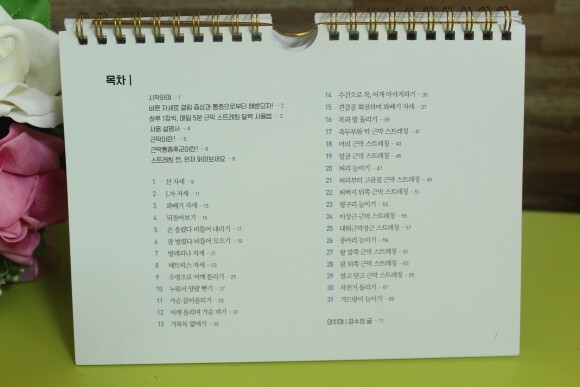 목차 |
시작하며 - 1
바른 자세로 결림 증상과 통증으로부터 해방되자! - 2
하루 1장씩, 매일 5분 근막 스트레칭 달력 사용법 - 3
사용 설명서 - 4
근막이란? - 5
근막통증후군이란? - 6
스트레칭 전, 먼저 읽어보세요 - 8
1 선 자세 - 9
2 L자 자세 - 11
3 꽈배기 자세 - 13
4 뒤돌아보기 - 15
5 손 올렸다 비틀어 내리기 - 17
6 팔 벌렸다 비틀어 모으기 - 19
7 발레리나 자세 - 21
8 매트릭스 자세 - 23
9 수평으로 어깨 돌리기 - 25
10 누워서 양팔 뻗기 - 27
11 가슴 끌어올리기 - 29
12 어깨 돌리며 가슴 펴기 - 31
13 거북목 없애기 - 33
14 수건으로 목, 어깨 마사지하기 - 35
15 견갑골 회전하며 꽈배기 자세 - 37
16 목과 팔 돌리기 - 39
17 측두부와 턱 근막 스트레칭 - 41
18 머리 근막 스트레칭 - 43
19 얼굴 근막 스트레칭 - 45
20 허리 늘이기 - 47
21 허리부터 고관절 근막 스트레칭 - 49
22 허벅지 뒤쪽 근막 스트레칭 - 51
23 옆구리 늘이기 - 53
24 이상근 근막 스트레칭 - 55
25 대퇴근막장근 스트레칭 - 57
26 종아리 늘이기 - 59
27 팔 앞쪽 근막 스트레칭 - 61
28 팔 뒤쪽 근막 스트레칭 - 63
29 열고 닫고 근막 스트레칭 - 65
30 자전거 돌리기 - 67
31 겨드랑이 늘이기 - 69
마치며 | 감수의 글 - 71